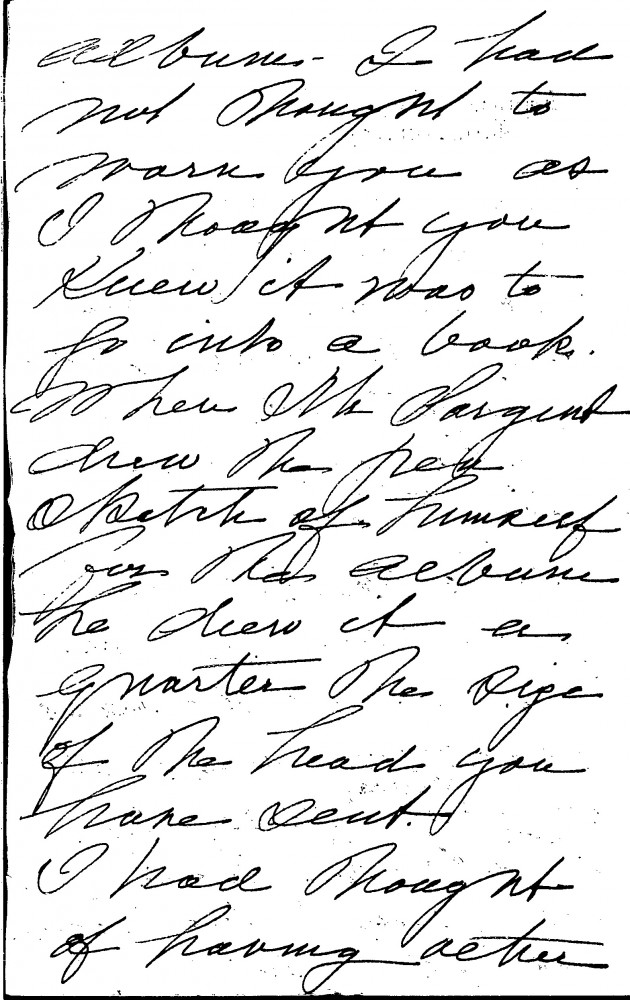 album - I had
not thought to
warn you as
I thought you
knew it was to
go into a book.
When Mr Sargent
drew the pen
sketch of himself
for this album
he drew it a
quarter the size
of the head you
have sent.
I had thought
of having